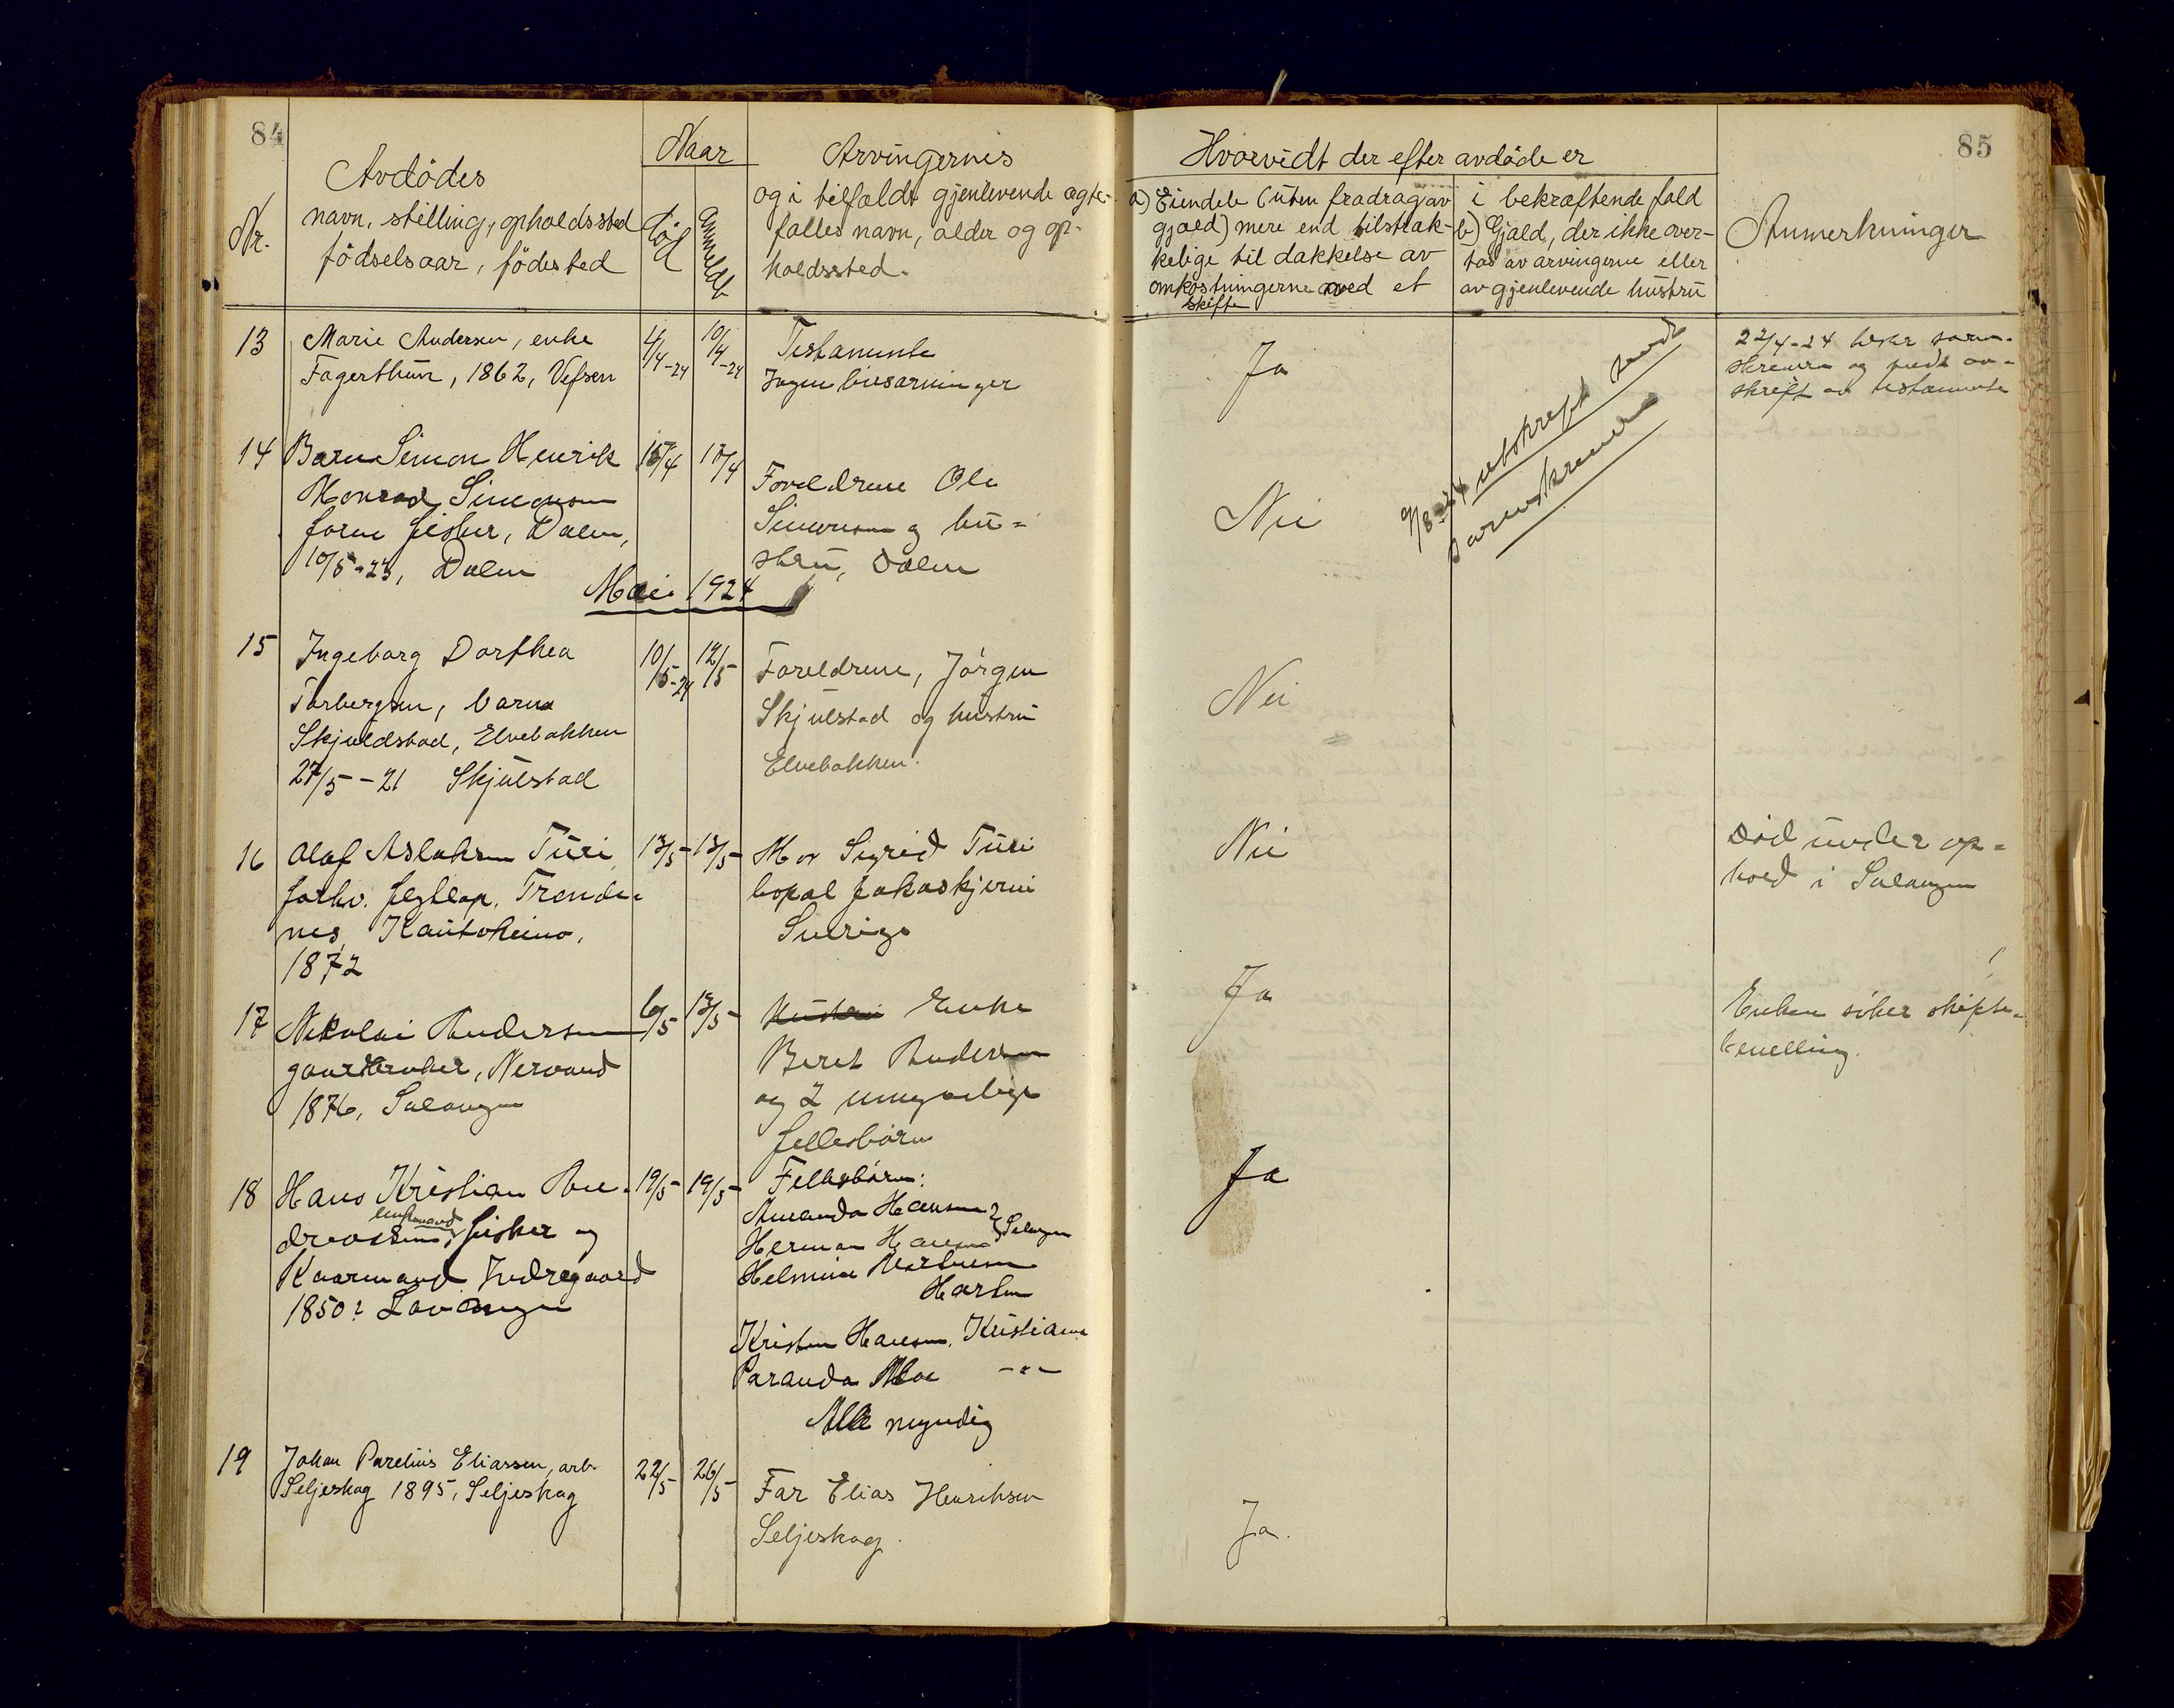 84
85
Nr.
Avdödes
navn, stilling, opholdssted
födselsaar, födested
Naar
död
anmeldt
Arvingernes
og i tilfældt gjenlevende ægte-
fælles navn, alder og op-
holdssted.
Hvorvidt der efter avdöde er
a) Eiendele (uten fradrag av
gjæld) mere end tilstræk-
kelige til dækkelse av
omkostningerne ved et
skifte
i bekræftende fald
b) Gjæld, der ikke over-
tas av arvingerne eller
av gjenlevende hustru
Anmerkninger
13
Marie Andersen, enke
Fagerthun, 1862, Vefsen
4/4-24
10/4-24
Testamente
Ingen livsarvinger
Ja
22/4-24
skriveren og av-
skrift av testamente
9/8-24 utskrift sendt
sorenskriveren
14
Barn Simon Henrik
Konrad Simonsen
forne fisker, Dalen,
10/5-23, Dalen
15/4
17/4
Foreldrene Ole
Simonsen og hu-
stru, Dalen
Nei
Mai 1924
15
Ingeborg Dorthea
Torbergsen, barn
Skjuldstad, Elvebakken
27/5-21 Skjulstad
10/5-24
12/5
Foreldrene, Jörgen
Skjulstad og hustru
Elvebakken.
Nei
16
Olaf Aslaksen Turi
forhv. flytlap. Tronde-
nes, Kautokeino,
1872
13/5
13/5
Mor Sigrid Turi
bopæl Jukaskjervi
Sverige
Nei
Död under op-
hold i Salangen
17
Nikolai Andersen
gaardbruker, Nervand
1876, Salangen
6/5
13/5
Hustru Enke
Beret Andersen
og 2 umyndige
fellesbörn
Ja
Enken söker skifte-
bevilling.
18
Hans Kristian An-
enkemand
dreassen, fisker og
Kaarmand Indregaard
1850? Lavangen
19/5
19/5
Fellesbörn:
Amanda Hansen
Herman Hansen } Salangen
Helmine Martinsen
Harstn
Kristen Hansen, Kristiania
Paranda Moe -"-
Alle myndig
Ja
19
Johan Parelius Eliassen, arb.
Seljeskog 1895, Seljeskog
22/5
26/5
Far Elias Henriksen
Seljeskog.
Ja.